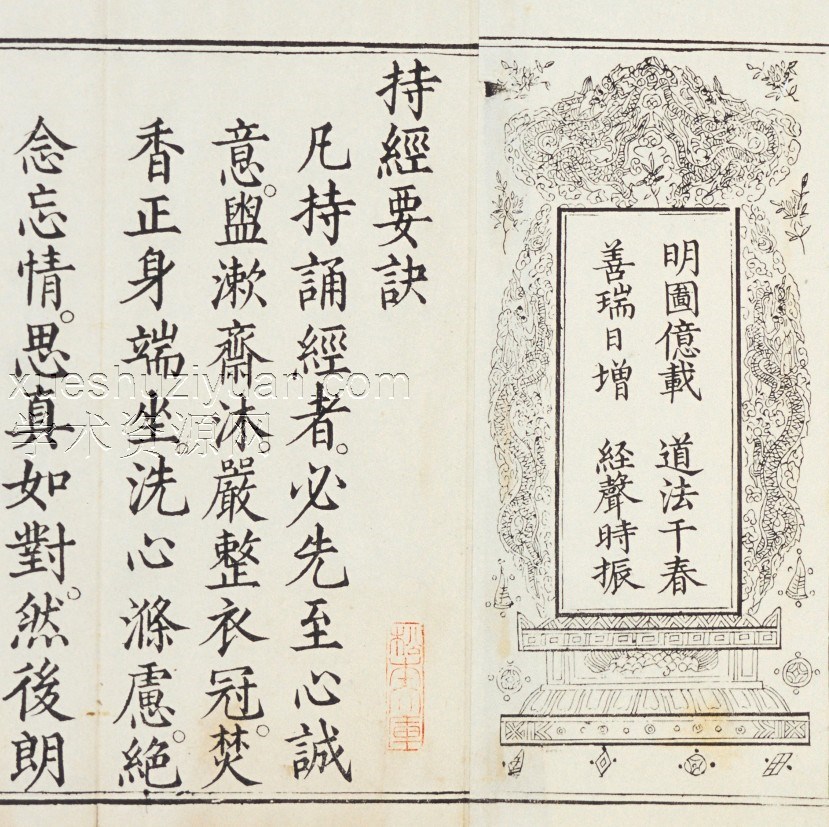 明圖億載　道法千春
善瑞日增　経聲時振
持經要訣
凡持誦經者。必先至心誠
意。盥漱齋沐。嚴整衣冠。焚
香正身端坐。洗心滌慮。絕
念忘情。思真如對。然後朗
xueshuziyuan.com
学术资源网